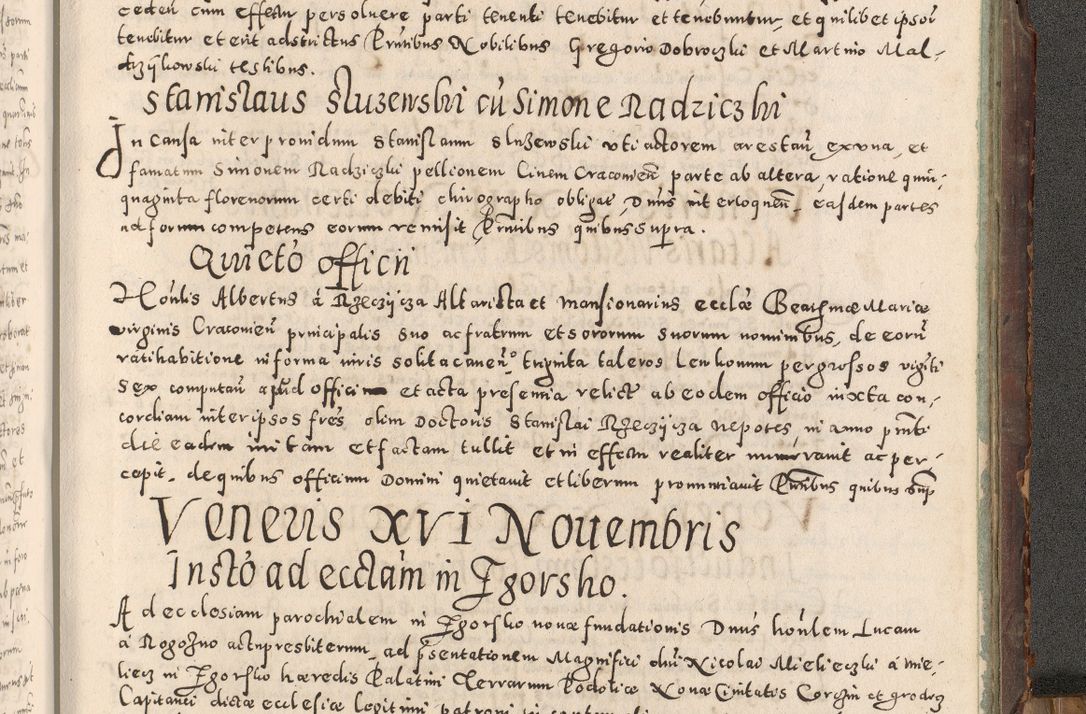 cedeń cum effectu persoluere parti tenenti tenebitur et tenebuntur, et quilibet ipsoꝝ
tenebitur et erit adstrictus Pꝛntibus Nobilibus Gregorio Dobroczki et Martino Mal-
dzijkowski testibus.
Stanislaus Sluzewski cū Simone Radziczki
In causa inter prouidum Stanislaum Sluzewski uti actorem arestań ex una, et
famatum Simonem Radziczki pellionem Ciuem Cracouień parte ab altera, ratione quin-
quaginta florenorum certi debiti chirographo obligat, Dnus interloquendo, easdem partes
ad forum competens eorum remisit Pꝛntibus quibus supra.
Quieto officii
Honlis Albertus á Rzeczijcza Altarista et Mansionarius ecclæ Beatissmæ Mariæ
virginis Cracouień principalis suo ac fratrum et sororum suorum nominibus, de eorū
ratihabitione in forma iuris solita cauen̄º triginta taleros Lenkouum per grossos vigiti
sex computań apud officium et acta presentia relict ab eodem officio iuxta con-
cordiam inter ipsos fres olim Doctoris Stanislai Rzeczijcza nepotes, in anno pn̄ti
die eadem initam et factam tullit et in effectu realiter numerauit ac per-
cepit, de quibus officium Domini quietauit et liberum pronuntiauit Pꝛntibus quibus sup
Veneris XVI Nouembris
Insto ad ecclam in Zgorsko.
Ad ecclesiam parochialem in Zgorsko nouæ fundationis Dnus honlem Lucam
á Rogozno actu presbiterum, ad p̄sentationem Magnifici dni Nicolai Mielieczki á Mie-
liecz in Zgorsko hæredis Palatini Terrarum Podoliæ Nouæ Ciuitatis Corchin et Grodeg
Capitanei dictæ ecclesiæ legitimi patroni